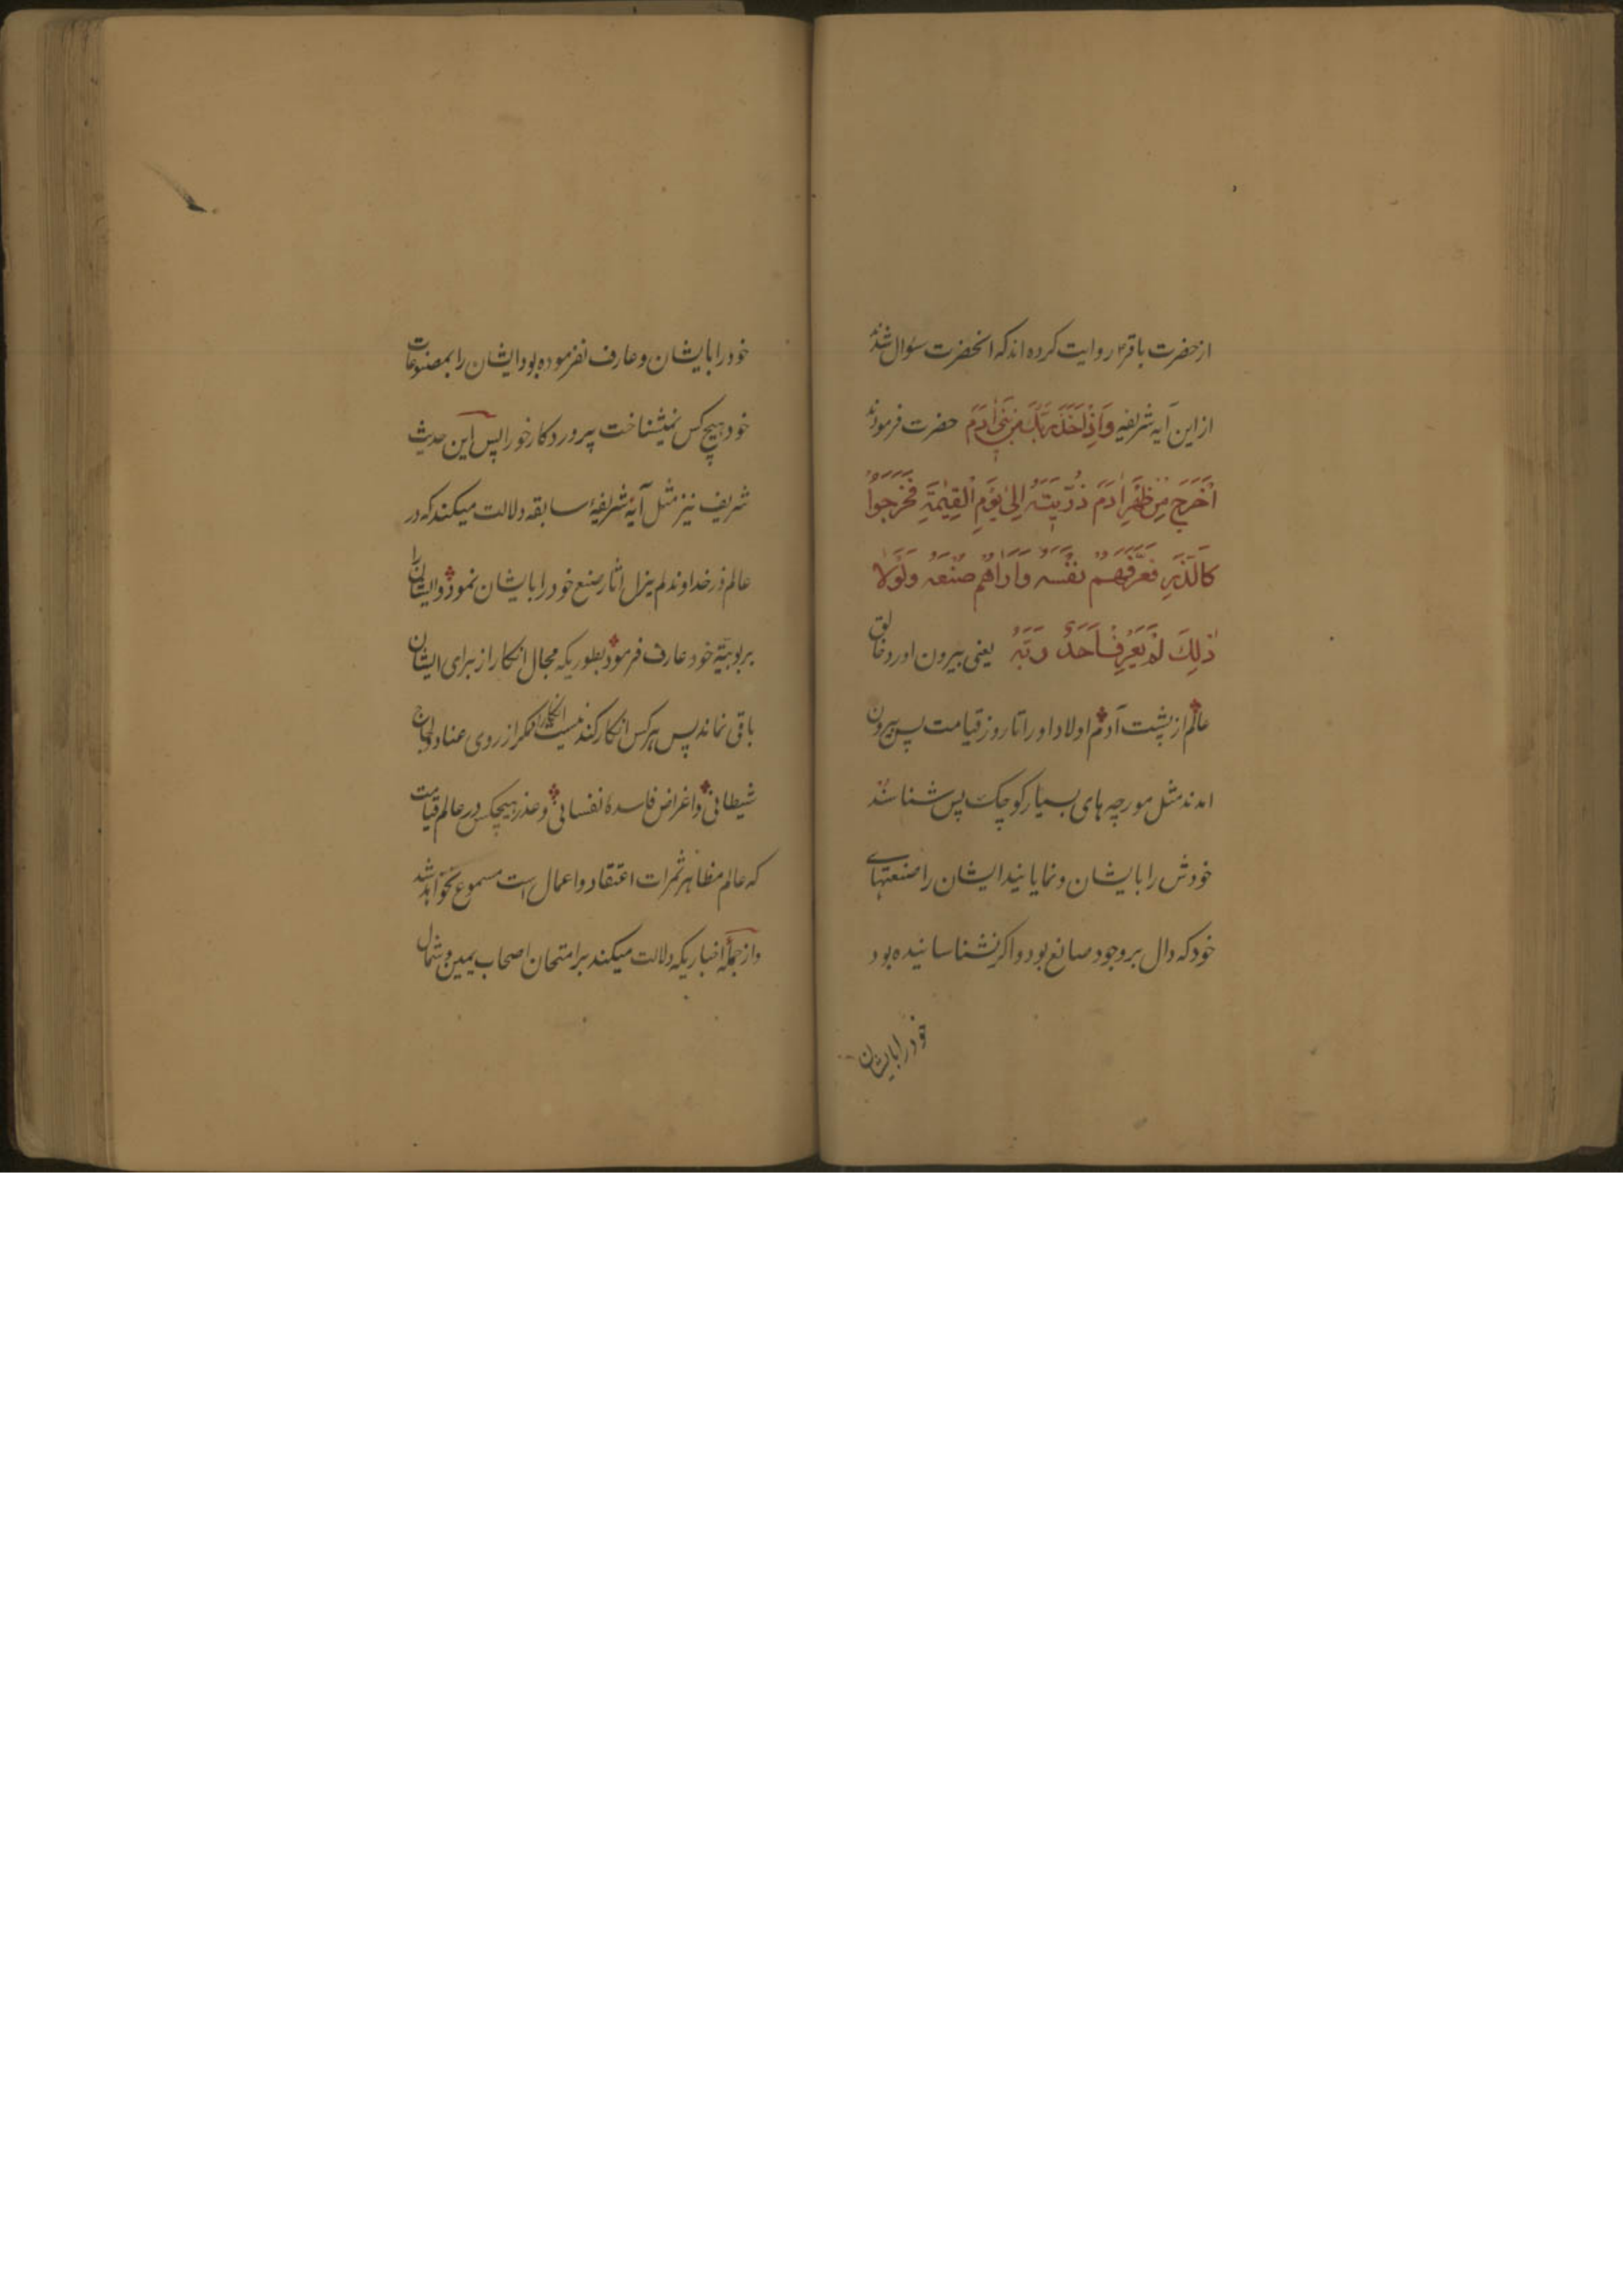 از حضرت باقر۴ روایت کرده اند که انحضرت سؤال شدند
از این آیه شریفه وَاِذْ اَخَذَ رَبُّكَ مِنْ بَنی اٰدَمَ حضرت فرمودند
اَخْرَجَ مِنْ ظَهْرِ اٰدَمَ ذُرِّیَّتَهُ اِلیٰ یَوْمِ الْقِیٰمَةِ فَخَرَجُوا
کَالذَّرِ فَعَرَّفَهُمْ نَفْسَهُ وَ اَرَاهُمْ صُنْعَهُ وَلَوْلا
ذٰلِكَ لَمْ یَعْرِفْ اَحَدٌ رَبَّهُ یعنی بیرون اورد خالق
عالم از پشت آدم اولاد او را تا روز قیامت پس بیرون
امدند مثل مورچه های بسیار کوچک پس شناساند
خودش را بایشان و نمایانید ایشان را صنعتهای
خود که دال بر وجود صانع بود و اکر نشناسانیده بود
خود را بایشان
خود را بایشان و عارف نفرموده بود ایشان را بمصنوعات
خود هیچ کس نمیشناخت پروردکار خود را پس این حدیث
شریف نیز مثل آیهٔ شریفهٔ سابقه دلالت میکند که در
عالم ذر خداوند لم یزل اثار صنع خود را بایشان نمود و ایشان را
بربوبیّة خود عارف فرمود بطوریکه مجال انکار از برای ایشان
باقی نماند پس هر کس انکار کند نیست انکار او مکر از روی عناد و لجاج
شیطانی و اغراض فاسدهٔ نفسانی و عذر هیچکس در عالم قیامت
که عالم مظاهر ثمرات اعتقاد و اعمال است مسموع نخواهد شد
و از جملهٔ اخباریکه دلالت میکند بر امتحان اصحاب یمین و شمال